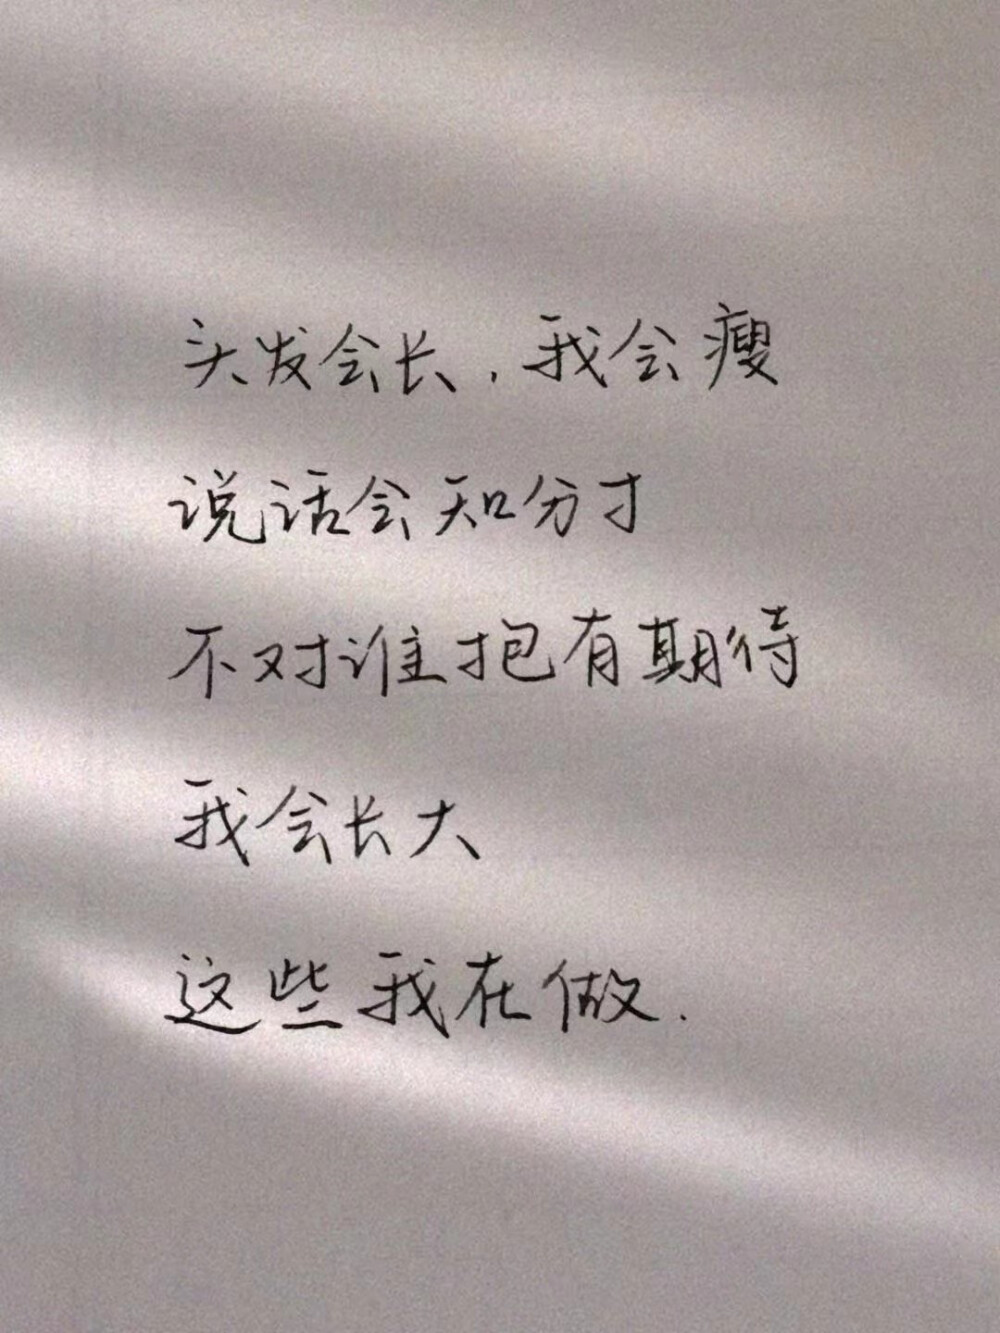 头发会长,我会瘦
说话会知分寸
不对谁抱有期待
我会长大
这些我在做.